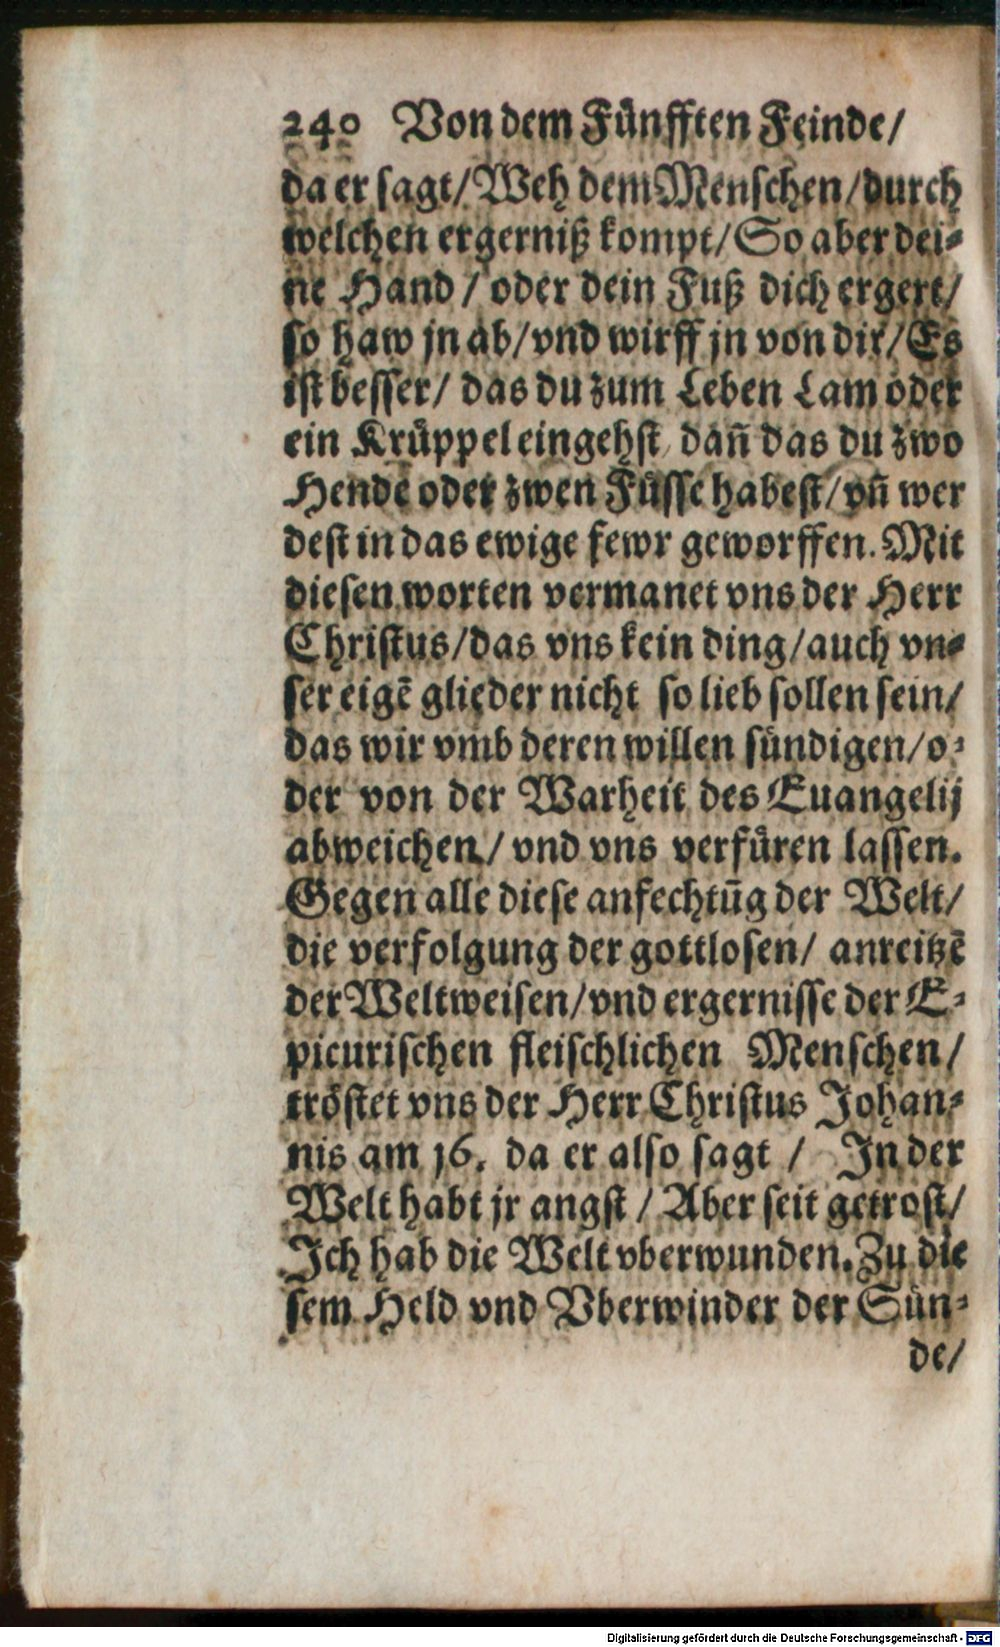 240 Von dem Fuͤnfften Feinde/
da er sagt/ Weh dem Menschen/durch
welchen ergerniß kompt/ So aber dei⸗
ne Hand / oder dein Fuß dich ergert/
so haw jn ab/vnd wirff jn von dir/ Es
ist besser/ das du zum Leben Lam oder
ein Kruͤppel eingehst/ dañ das du zwo
Hende oder zwen Fuͤsse habest/ vñ wer
dest in das ewige fewr geworffen. Mit
diesen worten vermanet vns der Herr
Christus/das vns kein ding/auch vn⸗
ser eigē glieder nicht so lieb sollen sein/
das wir vmb deren willen suͤndigen/o⸗
der von der Warheit des Euangelij
abweichen/ vnd vns verfuͤren lassen.
Gegen alle diese anfechtūg der Welt/
die verfolgung der gottlosen/ anreitzē
der Weltweisen/vnd ergernisse der E⸗
picurischen fleischlichen Menschen/
troͤstet vns der Herr Christus Johan⸗
nis am 16. da er also sagt / In der
Welt habt jr angst / Aber seit getrost/
Ich hab die Welt vberwunden. Zu die
sem Held vnd Vberwinder der Suͤn⸗
de/
Digitalisierung gefördert durch die Deutsche Forschungsgemeinschaft - DFG